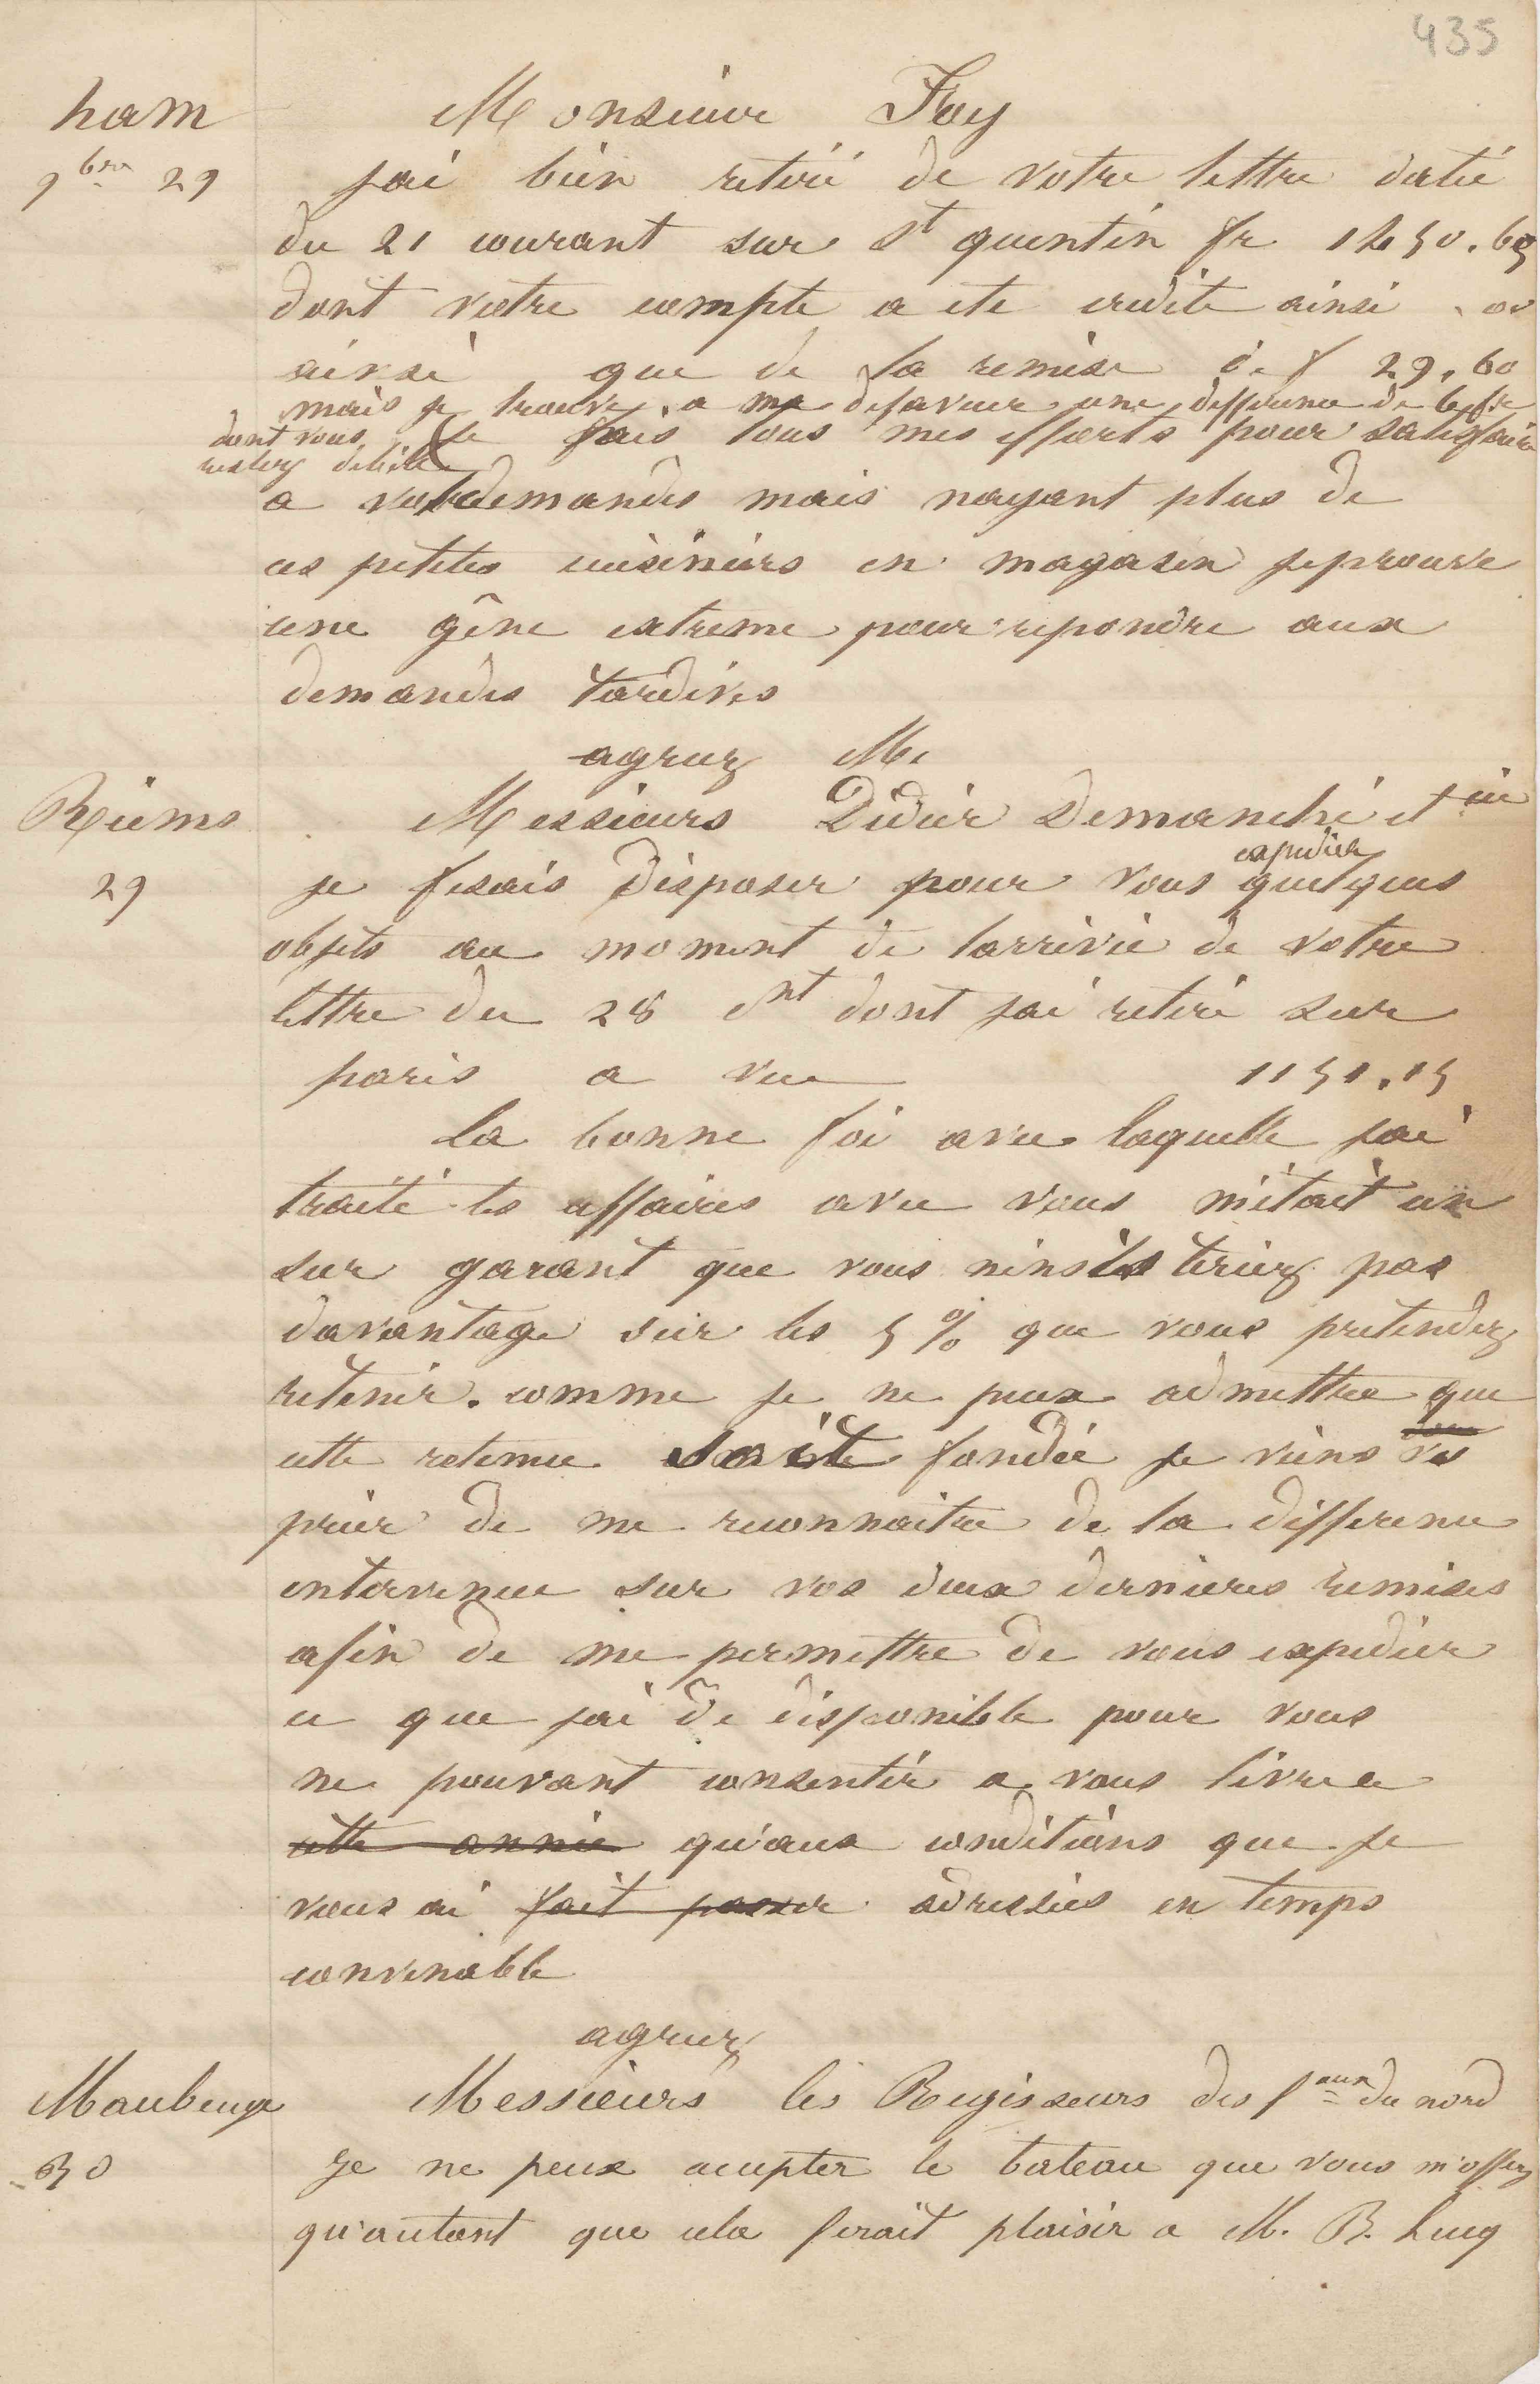 435
ham
Monsieur Foy
9bre 29
jai bien retiré de votre lettre datée
du 21 courant sur St quentin fr 1250.65
dont votre compte a ete credite ainsi
ainsi que de la remise de f 29.60
mais je trouve a ma defaveur une difference de
dont vous je fais tous mes efforts pour satisfaire
restez debité
a votre demandes mais nayant plus de
ces petites cuisinieres en magasin jeprouve
une gêne extreme pour repondre aux
demandes tardives
agreez M.
Reims
Messieurs Didier Demanche et cie
expedier
29
je fesais disposer pour vous quelques
objets au moment de larrivée de votre
lettre du 28 ct dont jai retiré sur
paris a vue 1151.15
La bonne foi avec laquelle jai
traité les affaires avec vous métait un
sur garant que vous ninsisteriez pas
davantage sur les 5 % que vous pretendez
retenir. comme je ne peux admettre que
cette retenue soit fondée je viens vs
prier de me reconnaitre de la difference
intervenue sur vos deux dernieres remises
afin de me permettre de vous expedier
ce que jai de disponible pour vous
ne pouvant consentir a vous livrer
cette année qu'aux conditions que je
vous ai fait passer adressées en temps
convenable
agreez
Maubeuge
Messieurs les Regisseurs des faux du nord
30
je ne peux accepter le bateau que vous m'offrez
qu'autant que cela ferait plaisir a M. B. Lucq